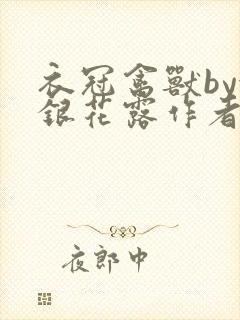 衣冠禽獸by
銀花露作者
夜郎中